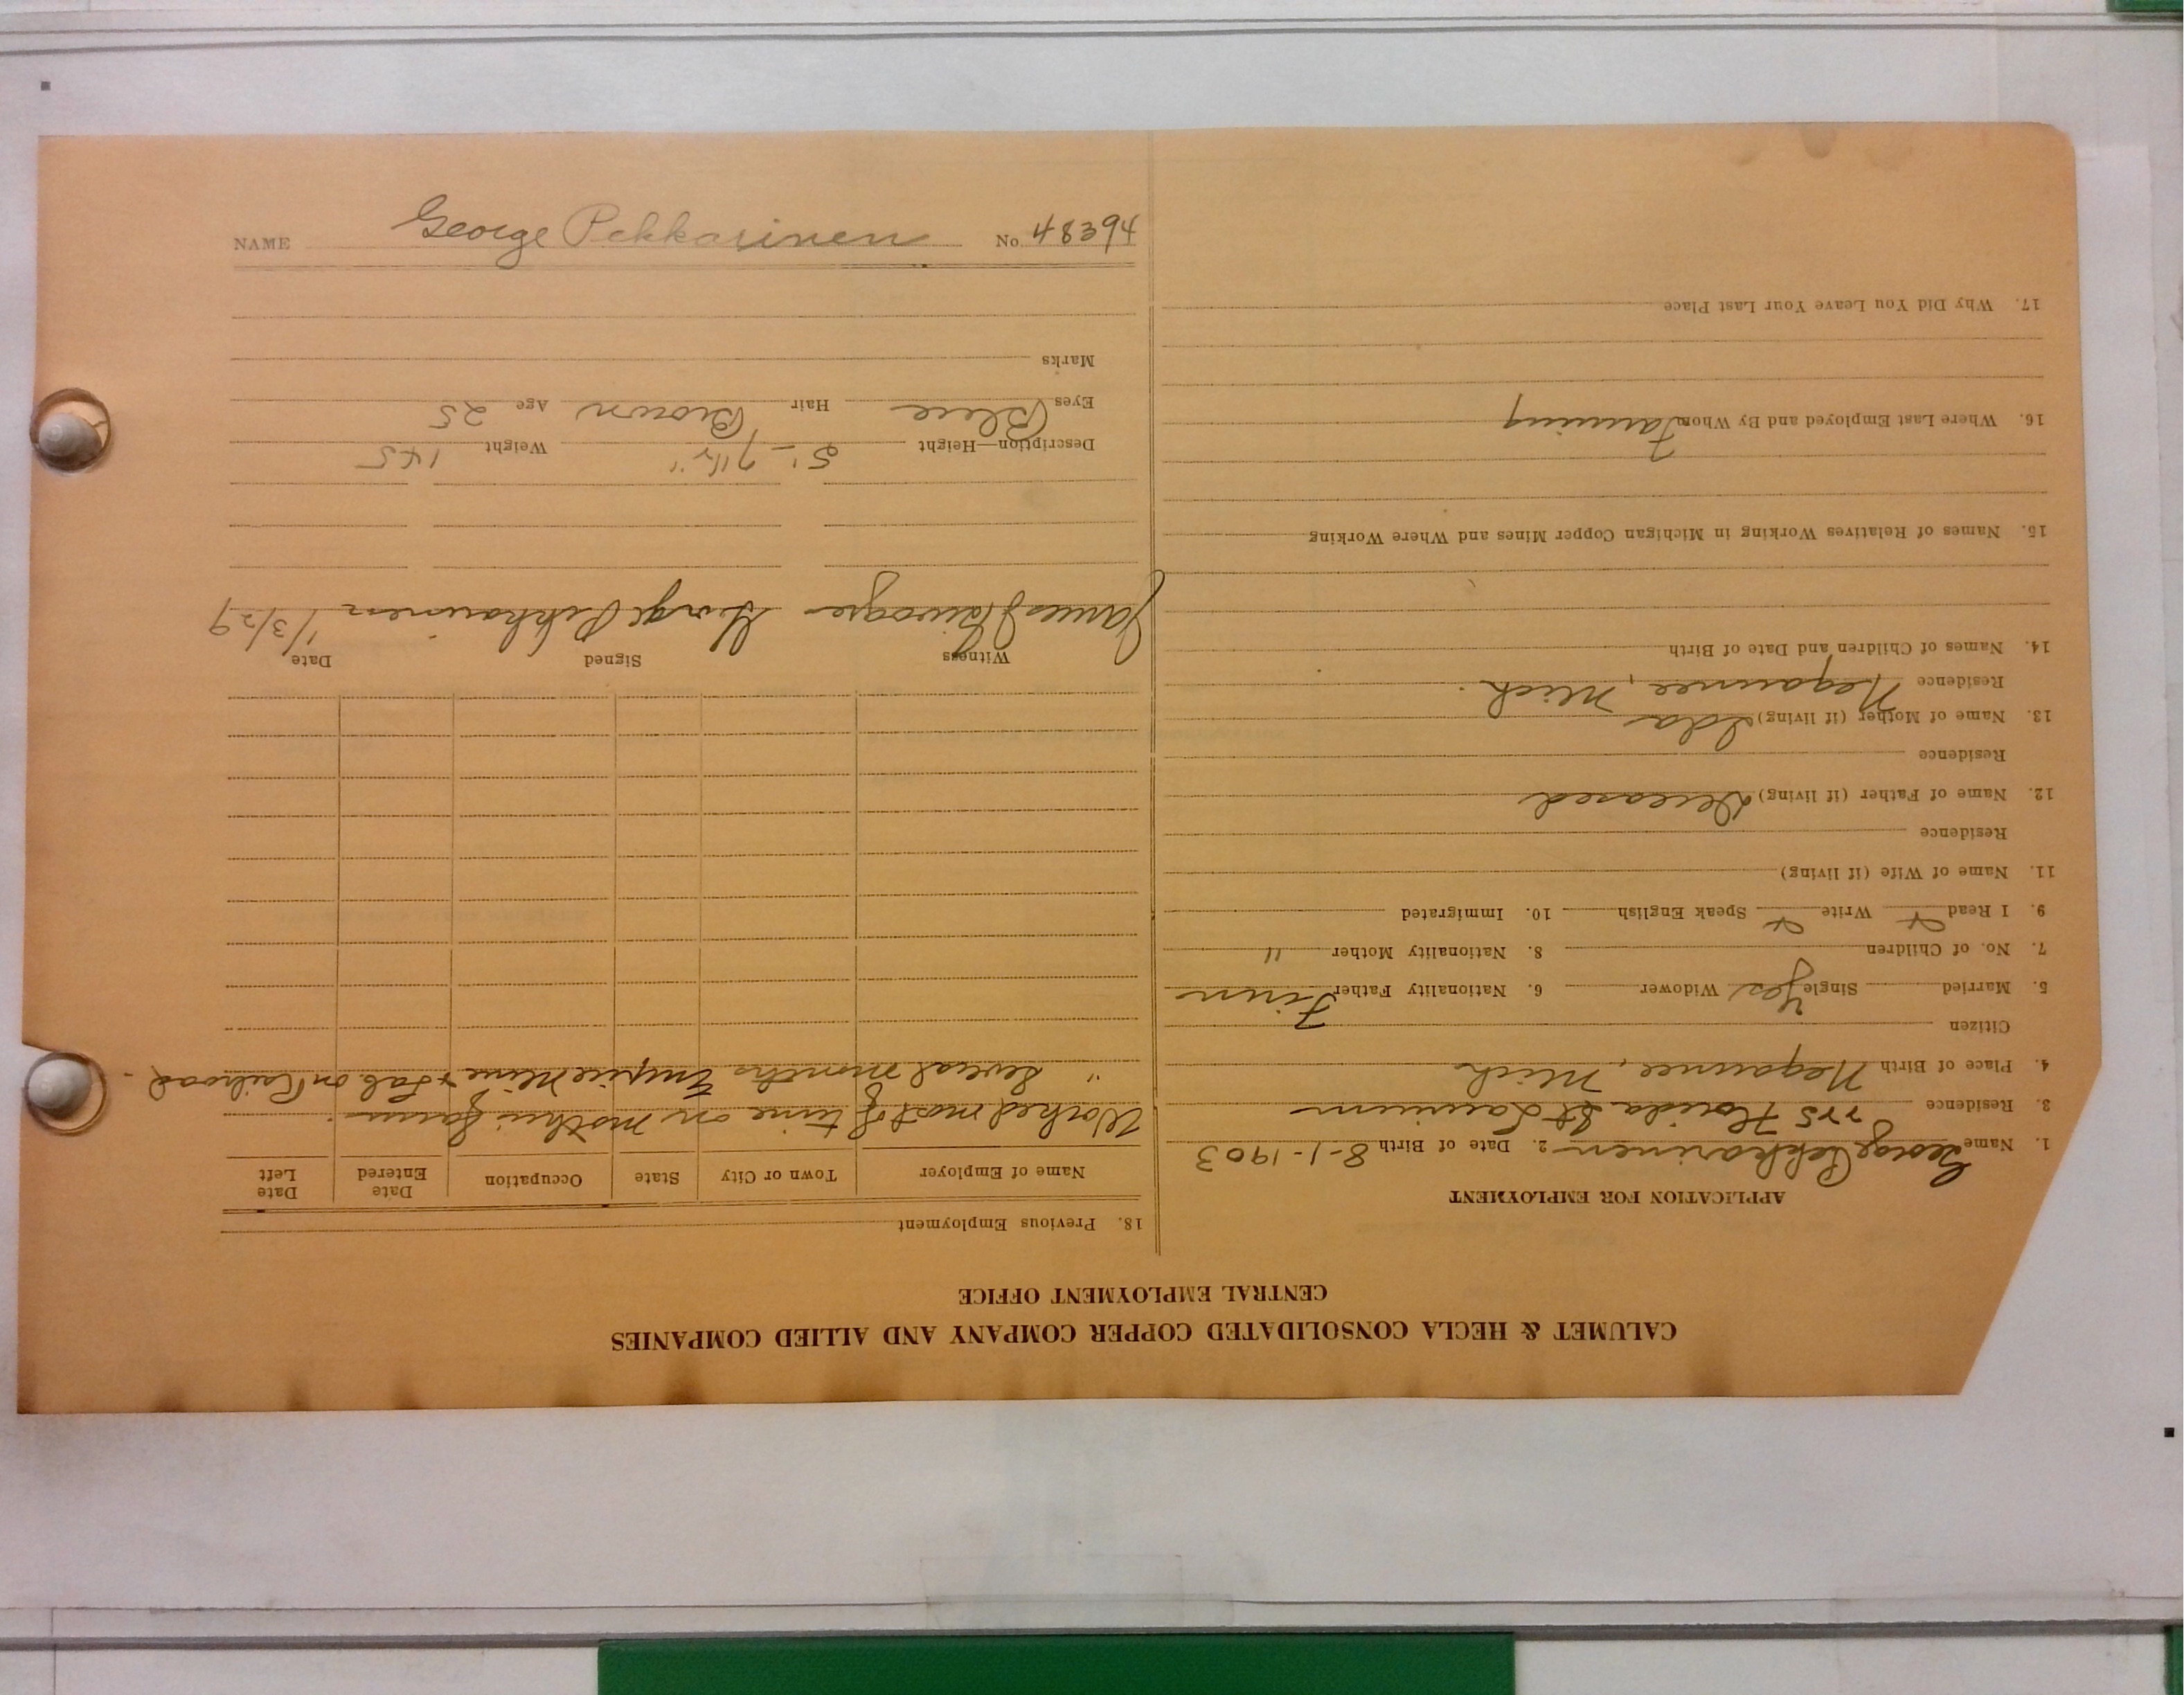 CALUMET & HECLA CONSOLIDATED COPPER COMPANY AND ALLIED COMPANIES
CENTRAL EMPLOYMENT OFFICE
APPLICATION FOR EMPLOYMENT
1. Name George Pekkarinen 2. Date of Birth 8-1-1903
3. Residence 225 Florida St Laurium
4. Place of Birth Negaunee, Mich
Citizen
5. Married Single Yes Widower 6. Nationality Father Finn
7. No. of Children 8. Nationality Mother "
9. I Read x Write x Speak English 10. Immigrated
11. Name of Wife (if living)
Residence
12. Name of Father (if living) Deceased
Residence
13. Name of Mother (if living) Ida
Residence Negaunee, Mich.
14. Names of Children and Date of Birth
15. Names of Relatives Working in Michigan Copper Mines and Where Working
16. Where Last Employed and By Whom Farming
17. Why Did You Leave Your Last Place
18. Previous Employment
Name of Employer Town or City State Occupation Date Entered Date Left
Worked most of time on mothers farm.
" Several months Empire Mine & Lab on Railroad.
Witness Signed Date
James George Pekkarinen 1/3/29
Description—Height 5'-7 1/2" Weight 145
Eyes Blue Hair Brown Age 25
Marks
NAME George Pekkarinen No. 48394